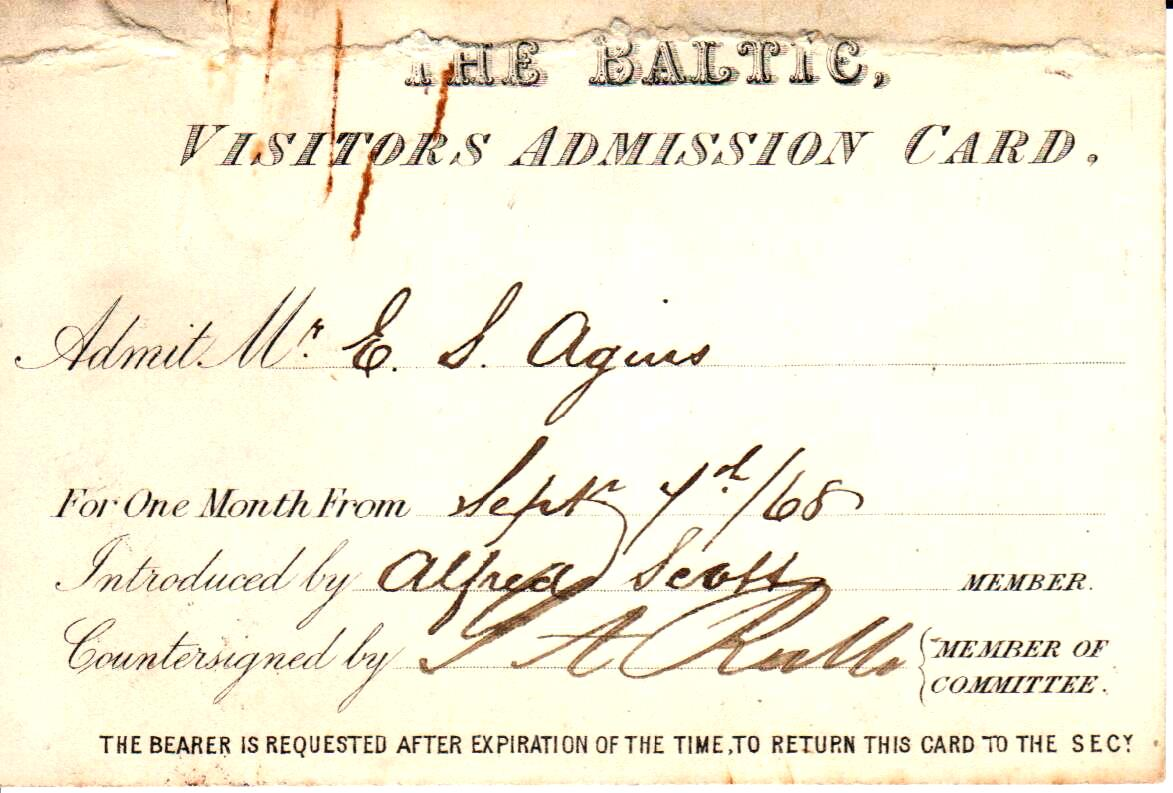 THE BALTIC,
VISITORS ADMISSION CARD.
Admit Mr. E. S. Agius
For One Month From Septr 7th/68
Introduced by Alfred Scott MEMBER.
Countersigned by A Ralli MEMBER OF
COMMITTEE.
THE BEARER IS REQUESTED AFTER EXPIRATION OF THE TIME, TO RETURN THIS CARD TO THE SECY